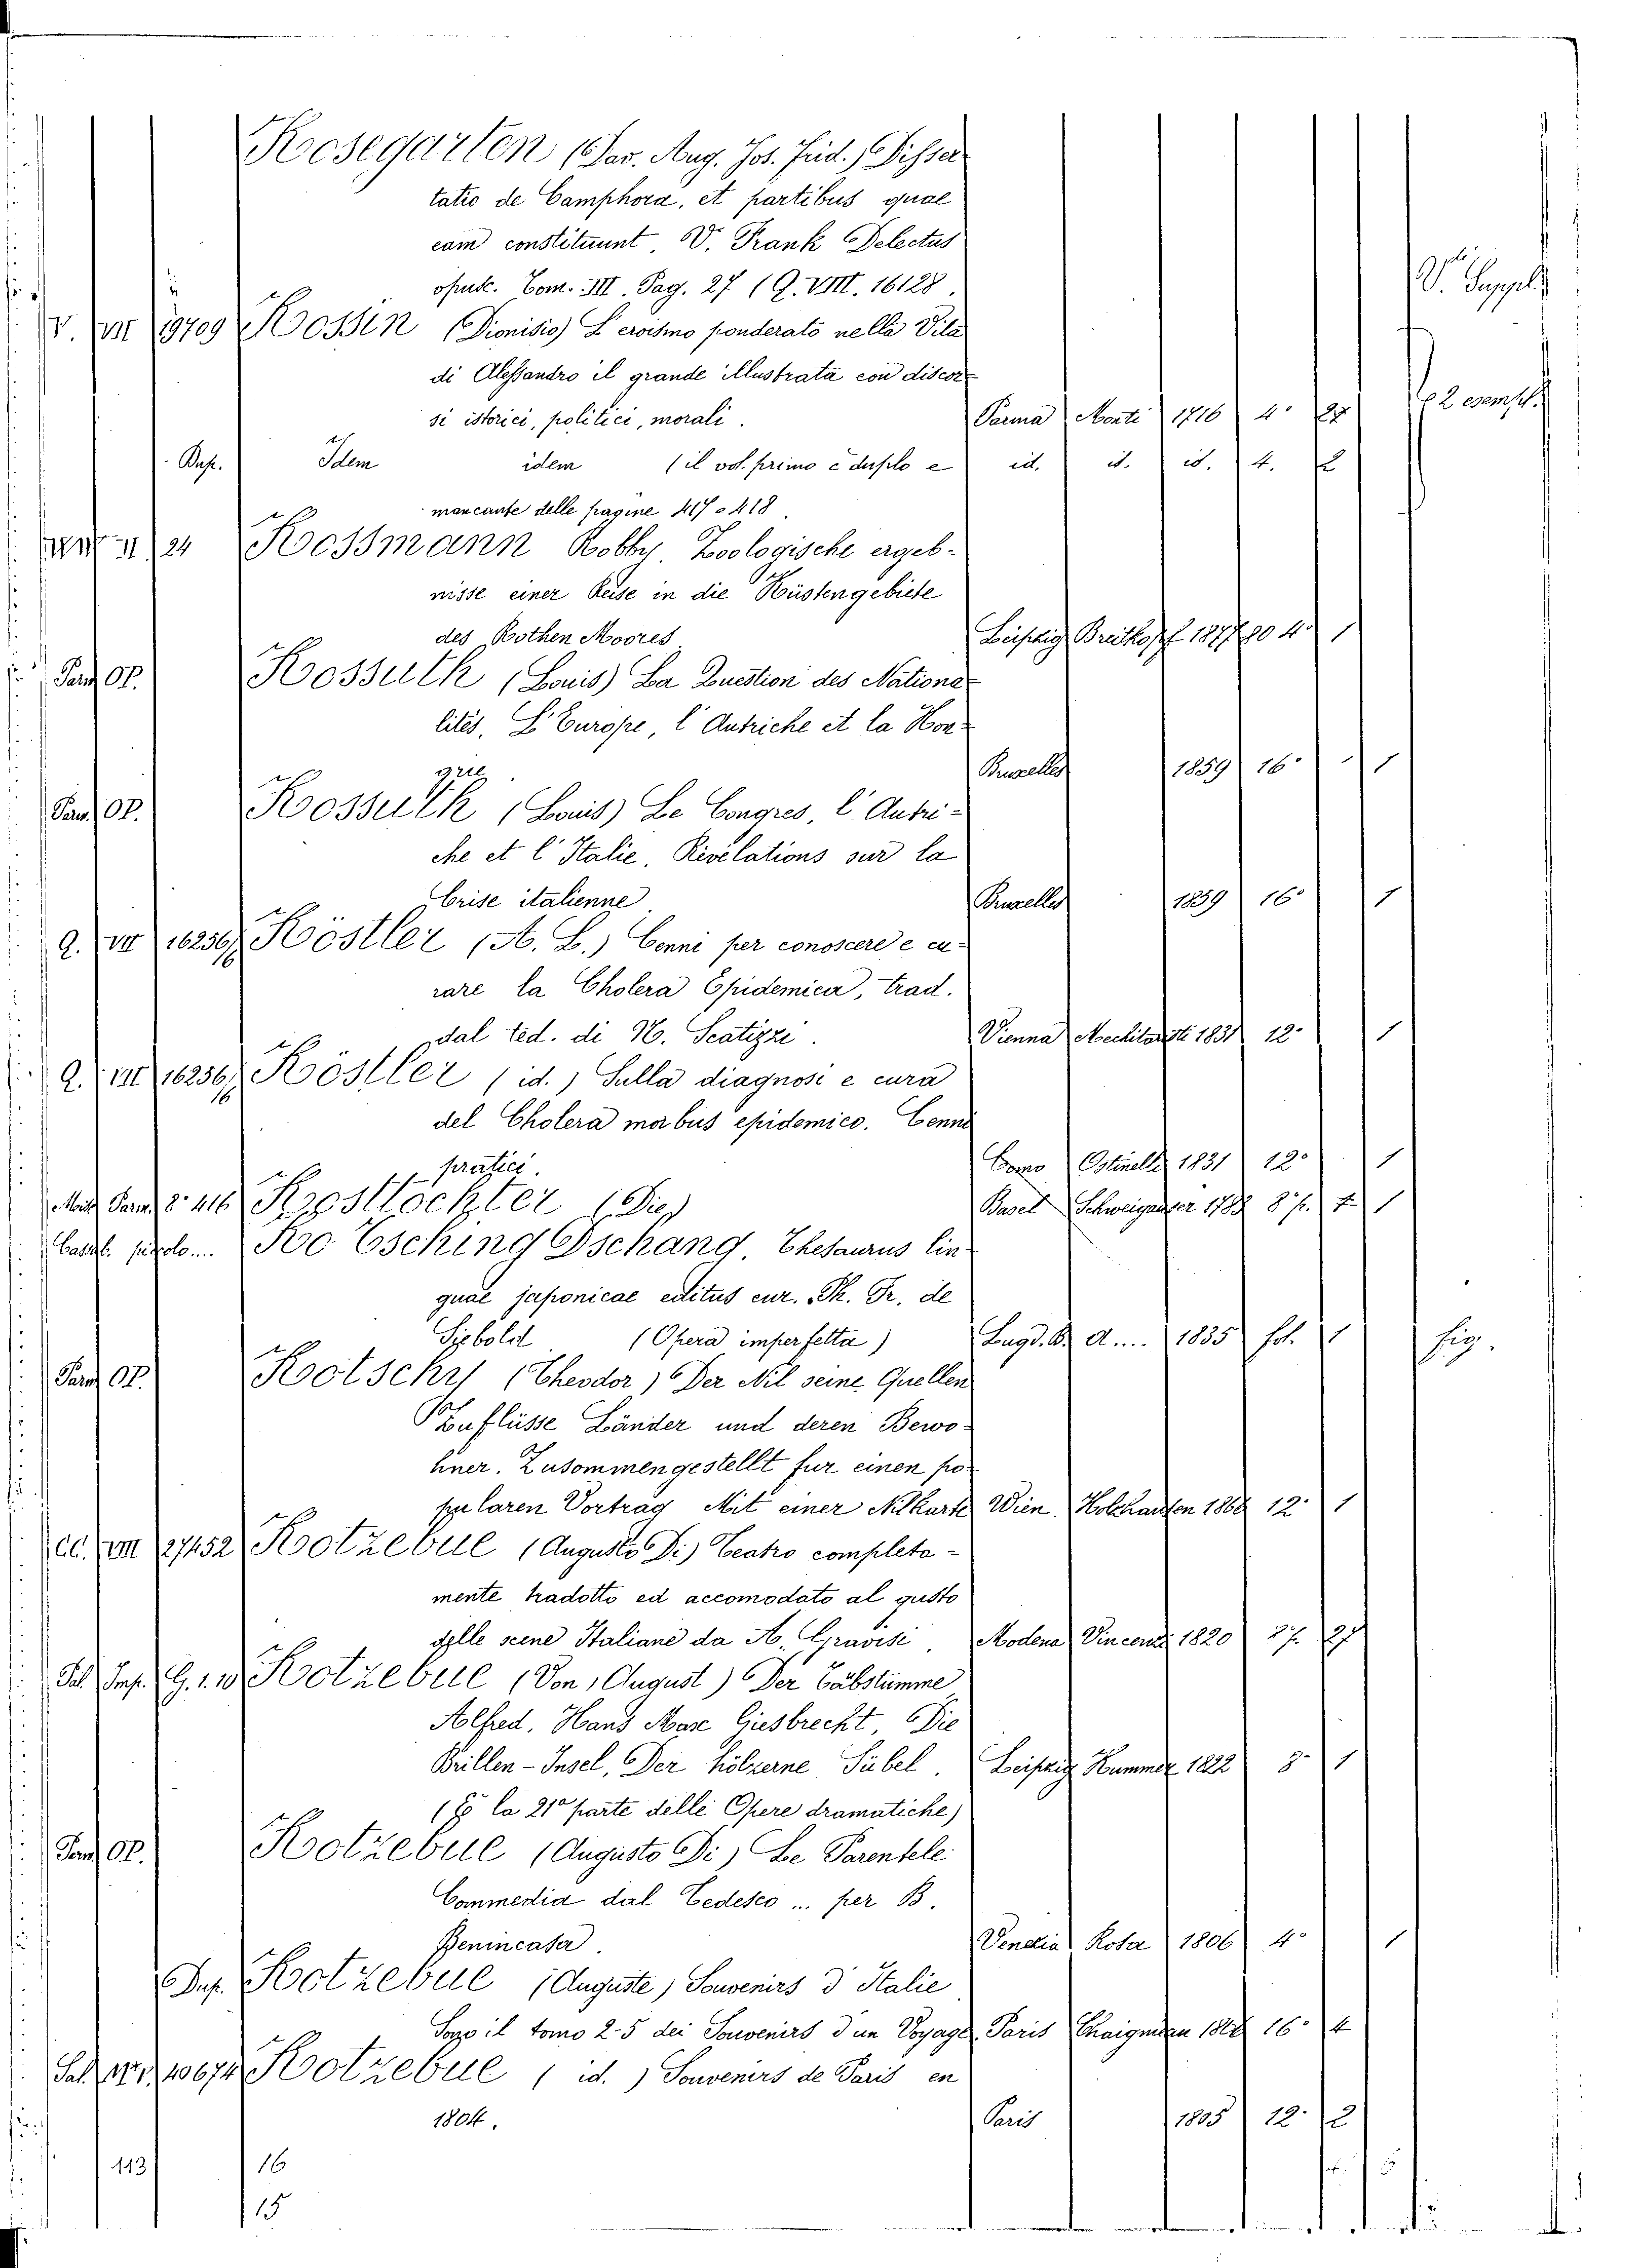 Kosegarten (Dav. Aug. Jos. Frid.) Disser
tatio de Camphora, et partibus quae
eam constituunt, V. Frank Delectus
opusc. Tom. III. Pag. 27 (Q. VIII. 16128.
V. Suppl.
V. VII 19709 Kossin (Dionisio) L'eroismo ponderato nella Vita
di Alessandro il grande illustrata con discor-
si istorici, politici, morali. Parma Monti 1716 4° 2
2 esempl.
Dup. Idem idem (il vol. primo è duplo e id. id. id. 4. 2
mancante delle pagine 417 e 418
II 24 Kossmann Robby Zoologische ergeb-
nisse einer Reise in die Küstengebiete
des Rothen Meeres Leipzig Breitkopf 1877 80 4° 1
Pam OP. Kossuth (Louis) La Question des Nationa-
lités, L'Europe, l'Autriche et la Hon-
grie Bruxelles 1859 16° 1
Pam. OP. Kossuth (Louis) Le Congres, l'Autri-
che et l'Italie. Révélations sur la
Crise italienne Bruxelles 1859 16° 1
Q. VII 16256/16 Köstler (A. L.) Cenni per conoscere e cu-
rare la Cholera Epidemica, trad.
dal ted. di N. Scatizzi. Vienna Mechitaristi 1831 12° 1
Q. VII 16256/16 Köstler (id.) Sulla diagnosi e cura
del Cholera morbus epidemico. Cenni
pratici. Como Ostinelli 1831 12° 1
Pam. 8° 416 Kosttöchter (Die) Basel Schweigauser 1788 8° p. 1
Ko Tsching Dschang, Thesaurus lin-
guae japonicae editus cur. Ph. Fr. de
Siebold (Opera imperfetta) Lugd. B. A.... 1835 fol. 1
fig.
Pam OP. Kotschy (Theodor) Der Nil seine Quellen
Zuflüsse Länder und deren Bewo-
hner. Zusammengestellt fur einen po-
pularen Vortrag Mit einer Nilkarte Wien. Holzhausen 1866 12° 1
CC. VIII 27452 Kotzebue (Augusto Di) Teatro completa-
mente tradotto ed accomodato al gusto
delle scene Italiane da A. Gravisi, Modena Vincenzi 1820
G. 1. 10 Kotzebue (Von, August) Der Taubstumme
Alfred, Hans Max Giesbrecht, Die
Brillen-Insel, Der hölzerne Säbel. Leipzig Kummer 1822 8° 1
(È la 21ª parte delle Opere dramatiche)
Pam OP. Kotzebue (Augusto Di) Le Parentele
Commedia dal Tedesco ... per B.
Benincasa. Venezia Rosa 1806 4° 1
Dup. Kotzebue (Auguste) Souvenirs d'Italie
Sono il tomo 2-5 dei Souvenirs d'un Voyage. Paris 16° 4
10674 Kotzebue (id.) Souvenirs de Paris en
1804. Paris 1805 12° 2
113 16
15